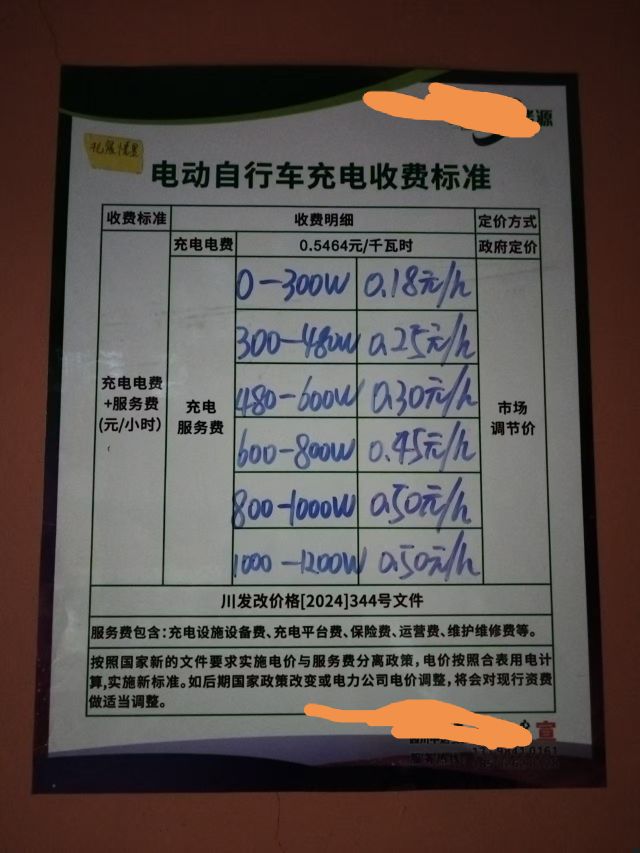 源
电动自行车充电收费标准
收费标准 收费明细 定价方式
充电电费 0.5464元/千瓦时 政府定价
充电电费
+服务费
(元/小时)
充电
服务费
0-300W 0.18元/h
300-480W 0.25元/h
480-600W 0.30元/h
600-800W 0.45元/h
800-1000W 0.50元/h
1000-1200W 0.50元/h
市场
调节价
川发改价格[2024]344号文件
服务费包含:充电设施设备费、充电平台费、保险费、运营费、维护维修费等。
按照国家新的文件要求实施电价与服务费分离政策,电价按照合表用电计
算,实施新标准。如后期国家政策改变或电力公司电价调整,将会对现行资费
做适当调整。
宣